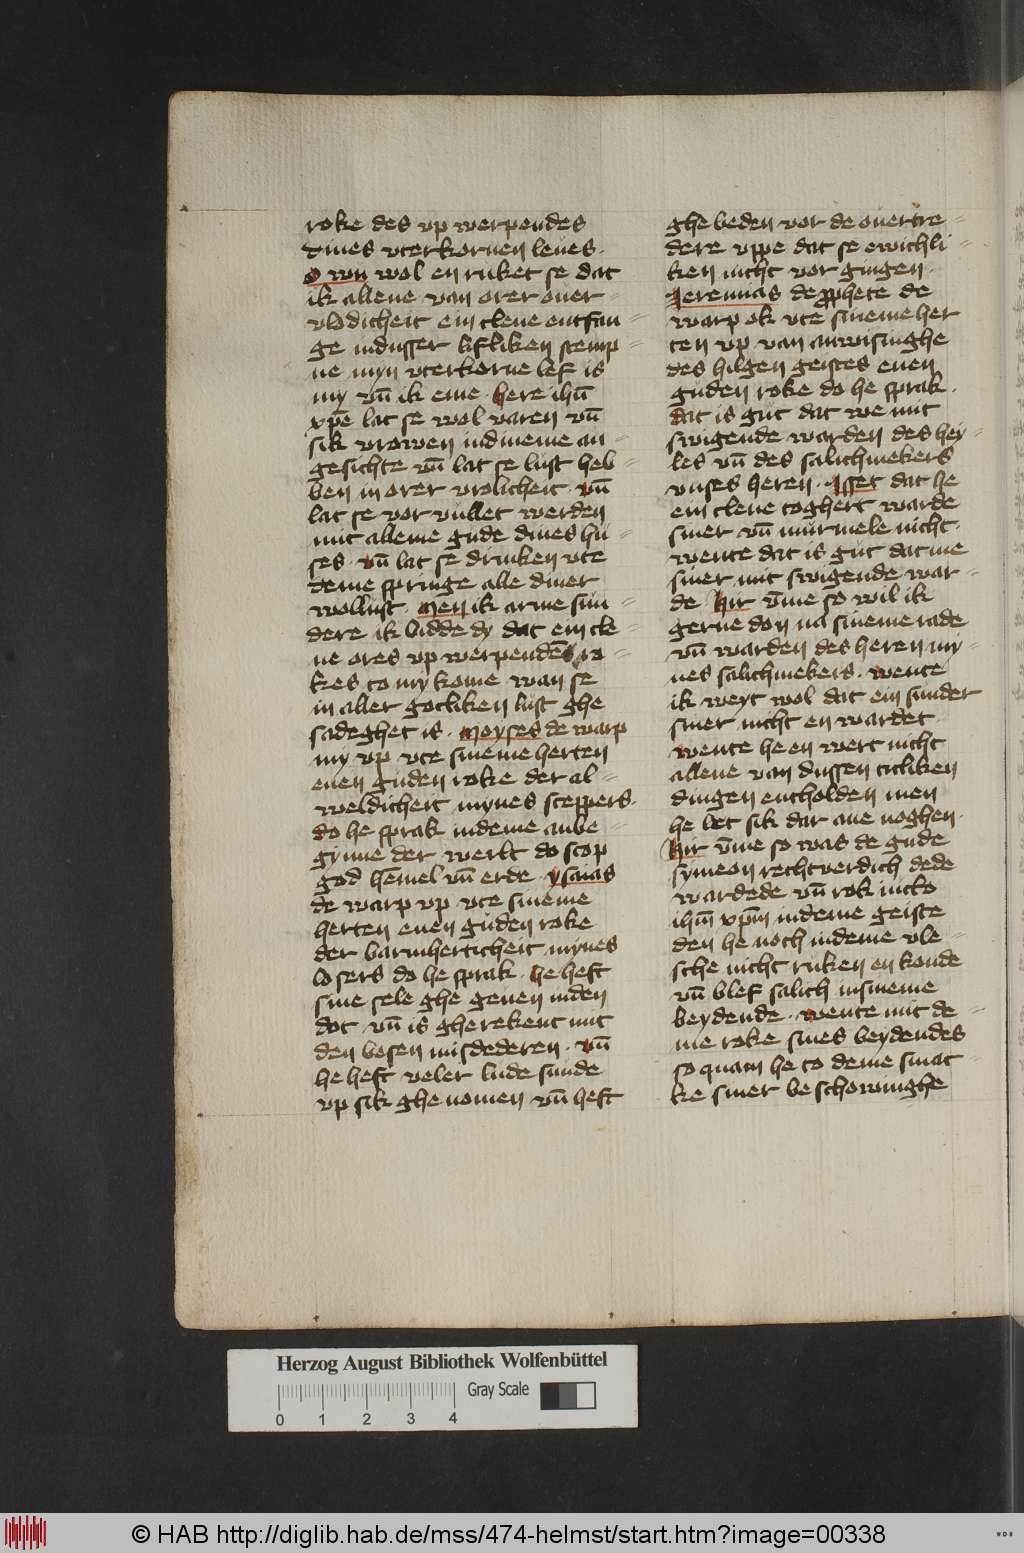 roke des vp werpendes
dines vterkornen leues ·
O wu wol en ruket se dat
ik allene van orer ouer-
vlodicheit ein clene entfan-
ge in dusser lifliken stemp-
ne myn vterkorne lef is
my vn̄ ik eme · here ihū
xp̄e lat se wol varen vn̄
sik vrowen in dineme an-
gesichte vn̄ lat se lust heb-
ben in orer vrolicheit · vn̄
lat se vor vullet werden
mit alleme gude dines hu-
ses · vn̄ lat se drinken vte
deme springe alle diner
wollust · Men ik arme sun-
dere ik bidde dy dat ein cle-
ne ores vp werpendes ro-
kes to my kome wan se
in aller gotliken lust ghe
sadeghet is · Moyses de warp
my vp vte sineme herten
enen guden roke der al-
weldicheit mynes sceppers ·
do he sprak in deme anbe-
gynne der werlt do scop
god hem̄el vn̄ erde · ysaias
de warp vp vte sineme
herten enen guden roke
der barmherticheit mynes
losers do he sprak · he heft
sine sele ghe geuen in den
dot vn̄ is gherekent mit
den bosen misdederen · vn̄
he heft veler lude sunde
vp sik ghenomen vn̄ heft
ghebeden vor de ouertre-
dere vppe dat se ewichli-
ken nicht vor gingen ·
Jeremias de prophete de
warp ok vte sineme her
ten vp van anwisinghe
des hilgen geistes enen
guden roke do he sprak ·
dat is gut dat we mit
swigende warden des hey-
les vn̄ des salichmekers
vnses heren · Isset dat he
ein clene toghert warde
siner vn̄ murmele nicht ·
wente dat is gut dat me
siner mit swigende war-
de Hir vm̄e so wil ik
gerne don na sineme rade
vn̄ warden des heren my-
nes salichmekers · wente
ik weyt wol dat ein sunder
siner nicht en wardet ·
wente he en wert nicht
allene van dussen titliken
dingen entholden men
he let sik dar ane noghen ·
Hir vm̄e so was de gude
symeon rechtverdich dede
wardede vn̄ rok
ihm̄ xpm̄ in deme geiste
den he noch in deme vle-
sche nicht ruken en konde
vn̄ blef salich in sineme
beydende · wente mit de-
me roke sines beydendes
so quam he to deme smac-
ke siner beschowinghe
Herzog August Bibliothek Wolfenbüttel
Gray Scale
0 1 2 3 4
© HAB http://diglib.hab.de/mss/474-helmst/start.htm?image=00338